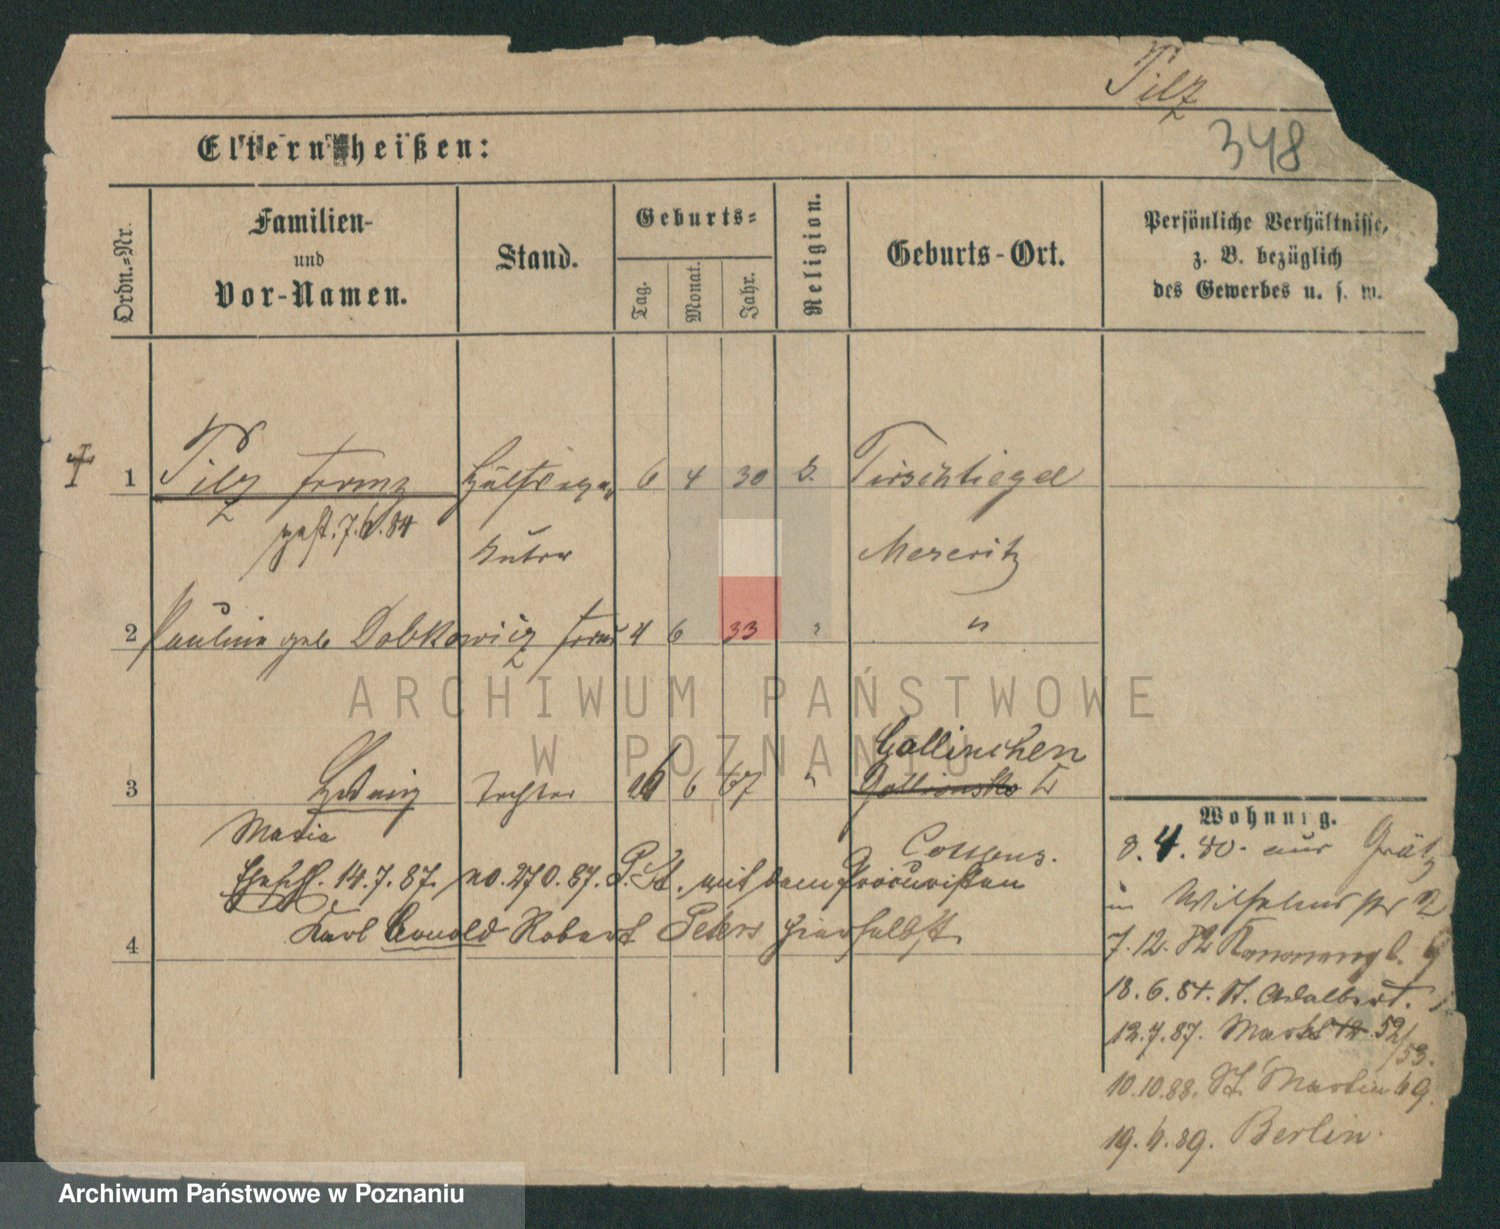 Tilz
348
Eltern heißen:
Ordn.=Nr.
Familien-
und
Vor-Namen.
Stand.
Geburts=
Tag.
Monat.
Jahr.
Religion.
Geburts-Ort.
Persönliche Verhältnisse,
z. B. bezüglich
des Gewerbes u. s. w.
1 Tilz Franz 6 4 30 Tirschtiegel
gest. 7.6.84 Meseritz
2 Pauline geb Dobkowicz Frau 4 6 33 "
ARCHIWUM PAŃSTWOWE
W POZNANIU
Gallinchen
3 Hedwig Tochter 6 67 "
Maria
Cottbus.
Ehesch. 14.7.87. no. 270.87. P. St. mit dem Procuristen
4 Karl Arnold Robert Peters hierselbst
Wohnung.
3.4.80. aus Grätz
in Wilhelmstr 2
7.12.82 Kanonenpl.
18.6.84. St. Adalbert.
12.7.87. Markt 52/53.
10.10.88. St. Martin 69.
19.6.89. Berlin.
Archiwum Państwowe w Poznaniu